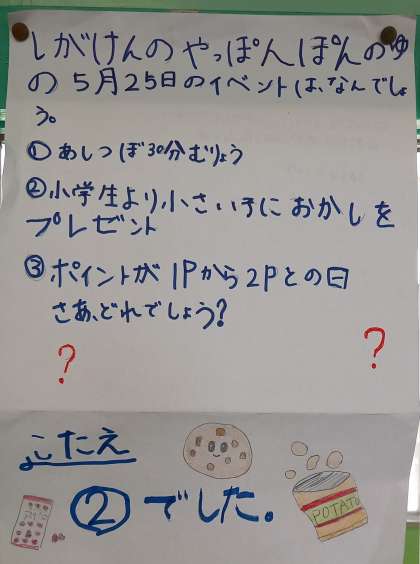 しがけんの やっぽんぽんのゆ
の 5月25日のイベントは、なんでしょ
う。
① あしつぼ30分むりょう
② 小学生より小さい子に おかしを
プレゼント
③ ポイントが 1Pから2Pとの日
さあ、どれでしょう?
? ?
こたえ
② でした。
POTATO